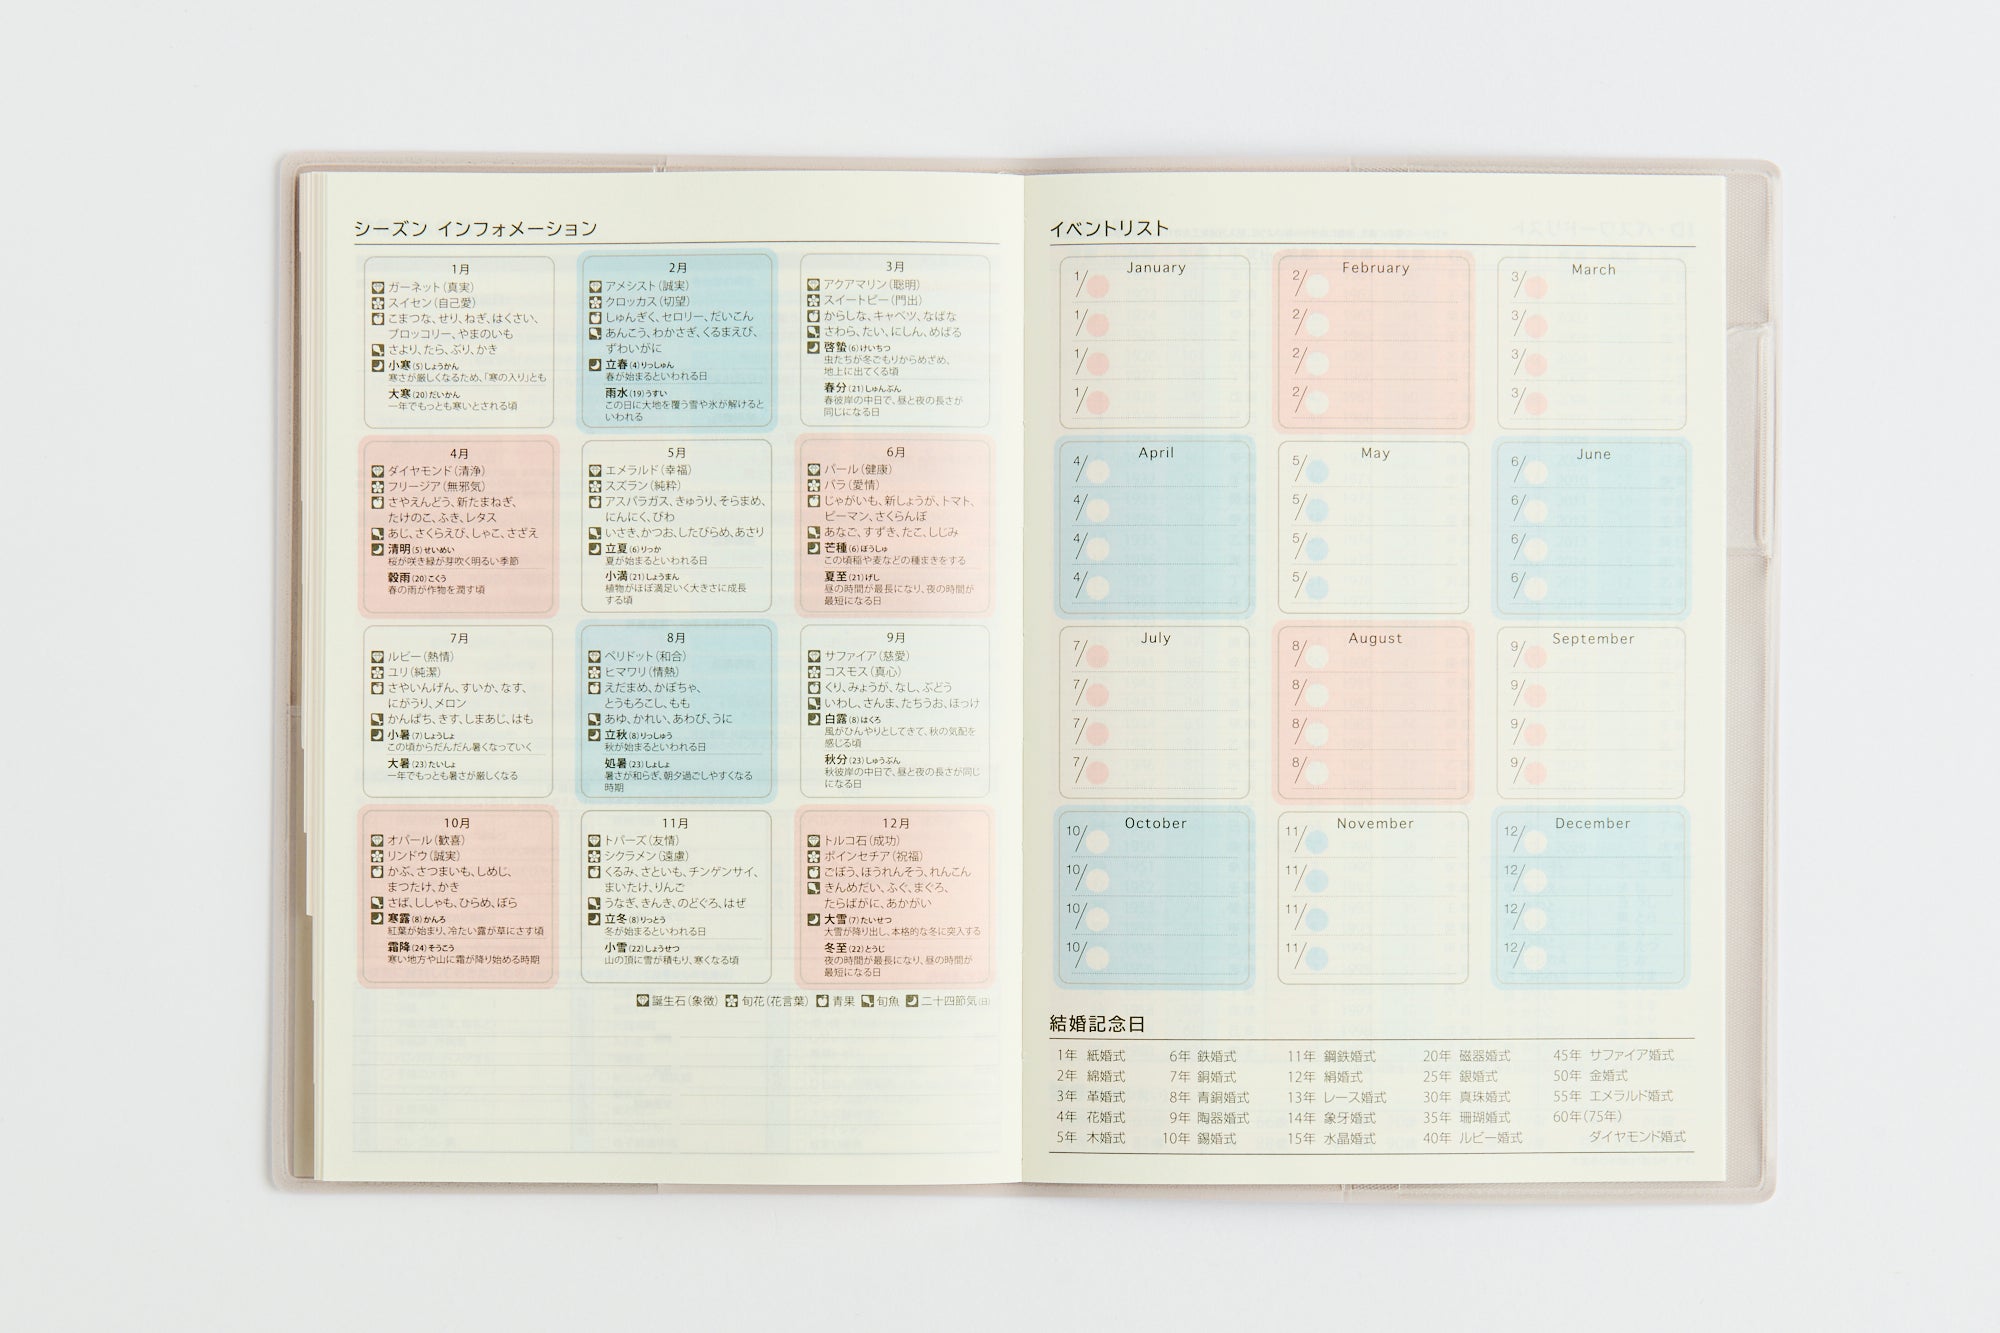 シーズン インフォメーション
1月
ガーネット(真実)
スイセン(自己愛)
こまつな、せり、ねぎ、はくさい、
ブロッコリー、やまのいも
さより、たら、ぶり、かき
小寒(5)しょうかん
寒さが厳しくなるため、「寒の入り」とも
大寒(20)だいかん
一年でもっとも寒いとされる頃
2月
アメシスト(誠実)
クロッカス(切望)
しゅんぎく、セロリー、だいこん
あんこう、わかさぎ、くるまえび、
ずわいがに
立春(4)りっしゅん
春が始まるといわれる日
雨水(19)うすい
この日に大地を覆う雪や氷が解けると
いわれる
3月
アクアマリン(聡明)
スイートピー(門出)
からしな、キャベツ、なばな
さわら、たい、にしん、めばる
啓蟄(6)けいちつ
虫たちが冬ごもりからめざめ、
地上に出てくる頃
春分(21)しゅんぶん
春彼岸の中日で、昼と夜の長さが
同じになる日
4月
ダイヤモンド(清浄)
フリージア(無邪気)
さやえんどう、新たまねぎ、
たけのこ、ふき、レタス
あじ、さくらえび、しゃこ、さざえ
清明(5)せいめい
桜が咲き緑が芽吹く明るい季節
穀雨(20)こくう
春の雨が作物を潤す頃
5月
エメラルド(幸福)
スズラン(純粋)
アスパラガス、きゅうり、そらまめ、
にんにく、びわ
いさき、かつお、したびらめ、あさり
立夏(6)りっか
夏が始まるといわれる日
小満(21)しょうまん
植物がほぼ満足いく大きさに成長
する頃
6月
パール(健康)
バラ(愛情)
じゃがいも、新しょうが、トマト、
ピーマン、さくらんぼ
あなご、すずき、たこ、しじみ
芒種(6)ぼうしゅ
この頃稲や麦などの種まきをする
夏至(21)げし
昼の時間が最長になり、夜の時間が
最短になる日
7月
ルビー(熱情)
ユリ(純潔)
さやいんげん、すいか、なす、
にがうり、メロン
かんぱち、きす、しまあじ、はも
小暑(7)しょうしょ
この頃からだんだん暑くなっていく
大暑(23)たいしょ
一年でもっとも暑さが厳しくなる
8月
ペリドット(和合)
ヒマワリ(情熱)
えだまめ、かぼちゃ、
とうもろこし、もも
あゆ、かれい、あわび、うに
立秋(8)りっしゅう
秋が始まるといわれる日
処暑(23)しょしょ
暑さが和らぎ、朝夕過ごしやすくなる
時期
9月
サファイア(慈愛)
コスモス(真心)
くり、みょうが、なし、ぶどう
いわし、さんま、たちうお、ほっけ
白露(8)はくろ
風がひんやりとしてきて、秋の気配を
感じる頃
秋分(23)しゅうぶん
秋彼岸の中日で、昼と夜の長さが同じ
になる日
10月
オパール(歓喜)
リンドウ(誠実)
かぶ、さつまいも、しめじ、
まつたけ、かき
さば、ししゃも、ひらめ、ぼら
寒露(8)かんろ
紅葉が始まり、冷たい露が草にさす頃
霜降(24)そうこう
寒い地方や山に霜が降り始める時期
11月
トパーズ(友情)
シクラメン(遠慮)
くるみ、さといも、チンゲンサイ、
まいたけ、りんご
うなぎ、きんき、のどぐろ、はぜ
立冬(8)りっとう
冬が始まるといわれる日
小雪(22)しょうせつ
山の頂に雪が積もり、寒くなる頃
12月
トルコ石(成功)
ポインセチア(祝福)
ごぼう、ほうれんそう、れんこん
きんめだい、ふぐ、まぐろ、
たらばがに、あかがい
大雪(7)たいせつ
大雪が降り出し、本格的な冬に突入する
冬至(22)とうじ
夜の時間が最長になり、昼の時間が
最短になる日
誕生石(象徴) 旬花(花言葉) 青果 旬魚 二十四節気(日)
イベントリスト
January
1/
1/
1/
1/
February
2/
2/
2/
2/
March
3/
3/
3/
3/
April
4/
4/
4/
4/
May
5/
5/
5/
5/
June
6/
6/
6/
6/
July
7/
7/
7/
7/
August
8/
8/
8/
8/
September
9/
9/
9/
9/
October
10/
10/
10/
10/
November
11/
11/
11/
11/
December
12/
12/
12/
12/
結婚記念日
1年 紙婚式 6年 鉄婚式 11年 鋼鉄婚式 20年 磁器婚式 45年 サファイア婚式
2年 綿婚式 7年 銅婚式 12年 絹婚式 25年 銀婚式 50年 金婚式
3年 革婚式 8年 青銅婚式 13年 レース婚式 30年 真珠婚式 55年 エメラルド婚式
4年 花婚式 9年 陶器婚式 14年 象牙婚式 35年 珊瑚婚式 60年(75年)
5年 木婚式 10年 錫婚式 15年 水晶婚式 40年 ルビー婚式 ダイヤモンド婚式